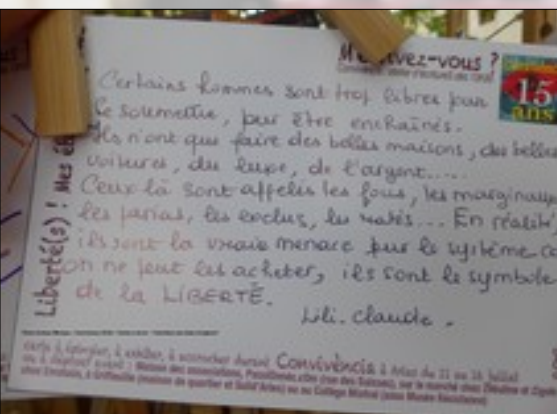 M'é vez-vous ?
15 ans
Certains hommes sont trop libres pour
se soumettre, pour être enchaînés.
Ils n'ont que faire des belles maisons, des belles
voitures, du luxe, de l'argent.....
Ceux là sont appelés les fous, les marginaux
les parias, les exclus, les ratés... En réalité,
ils sont la vraie menace pour le système ca
on ne peut les acheter, ils sont le symbole
de la LIBERTÉ.
Lili. Claude.
Liberté(s) ! Mes é
carte à épingler, à exhiber, à accrocher durant Convivència à Arles du 11 au 16 juillet
ou à déposer avant : Maison des associations,